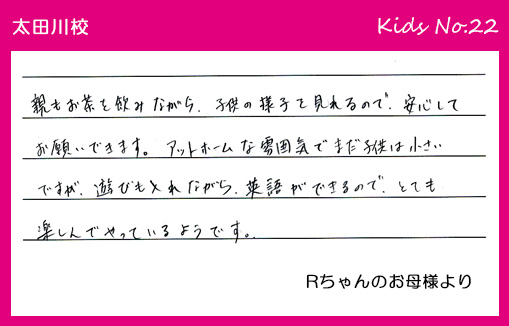 太田川校
Kids No.22
親もお茶を飲みながら、子供の様子を見れるので、安心して
お願いできます。アットホームな雰囲気でまだ子供は小さい
ですが、遊びも入れながら、英語ができるので、とても
楽しんでやっているようです。
Rちゃんのお母様より